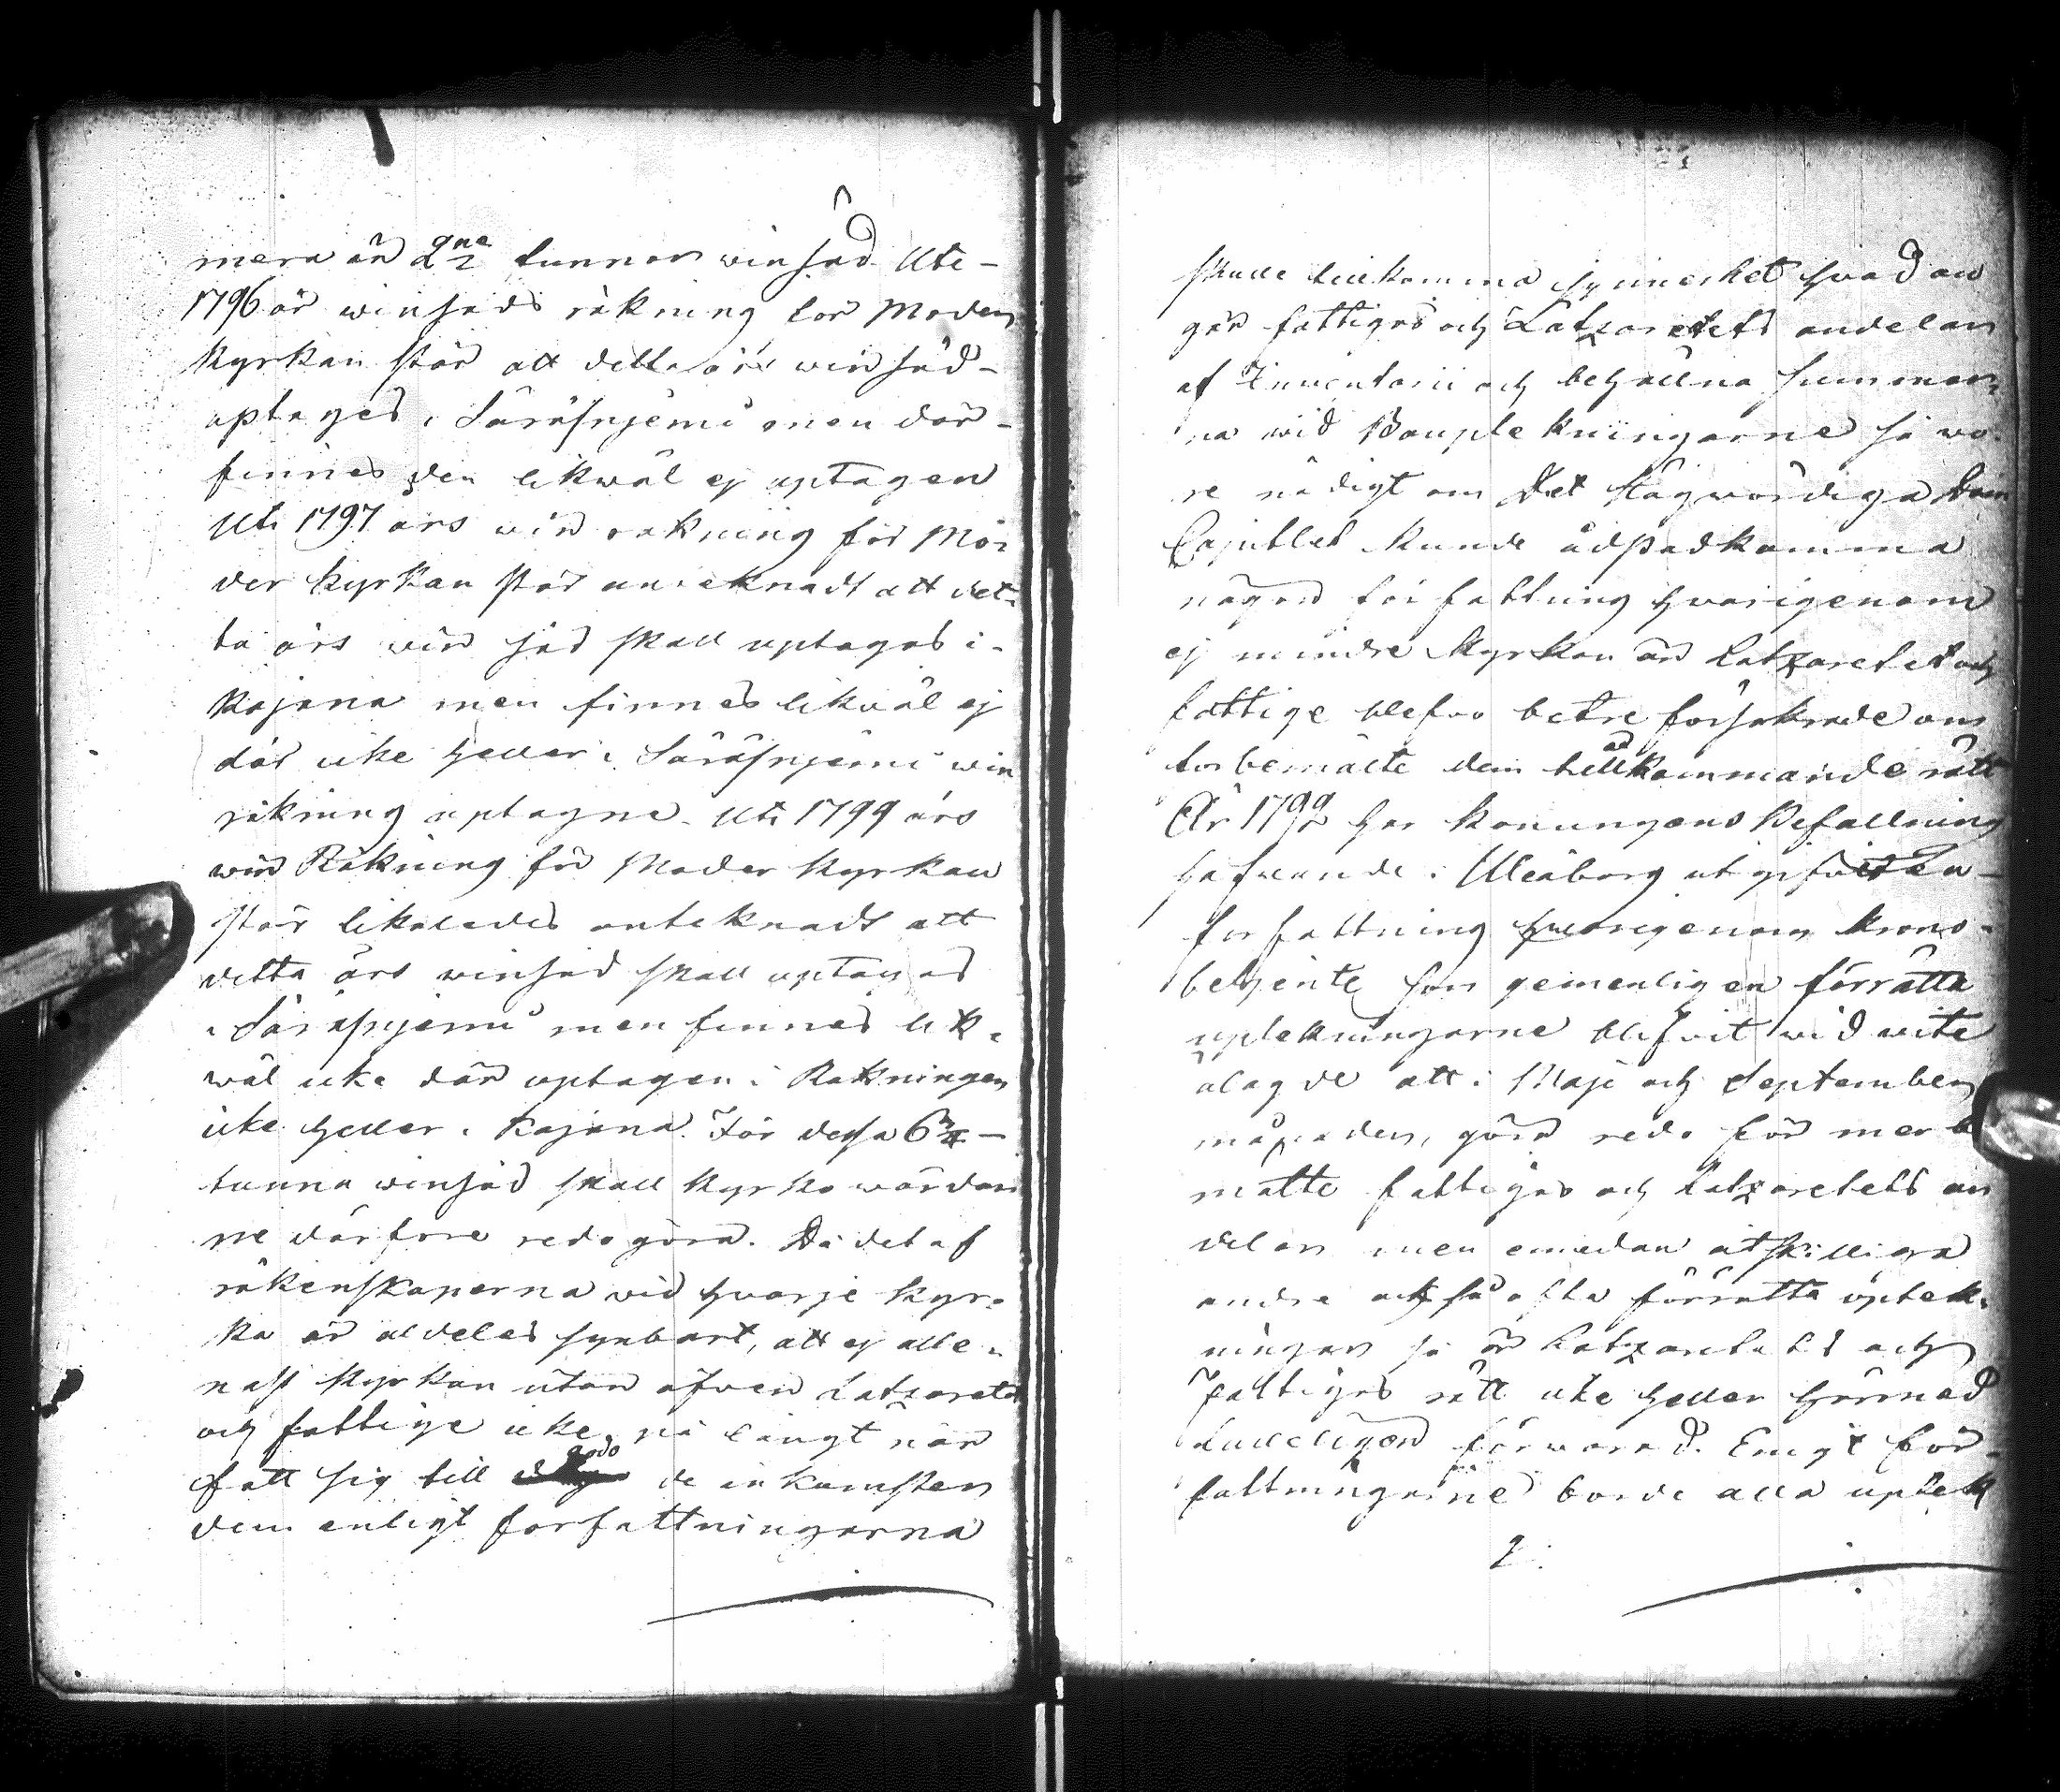 mera än 2ne tunnor winsäd Uti-
1796 år winsäds räkning för Moder
kyrkan står att detta års winsäd-
uptages i Säräsnjemi men där-
finnes den likwäl ej uptagen
Uti 1797 års win räkning för Mo-
der kyrkan står anteknadt att det-
ta års win säd skall uptagas i-
Kajana men finnes likwäl ej
där icke heller i Säräsnjemi win
räkning uptagne. Uti 1799 års
win Räkning för Moder kyrkan
står likaledes anteknadt att
detta års winsäd skall uptagas
i Säräsnjemi men finnes lik-
wäl icke där uptagen i Räkningen
icke heller i Kajana. För dessa 6¾-
tunna winsäd skall kyrko wärdar
ne därföre redogöra. Då det af
räkenskaperna wid hvarje kyr-
ka är aldeles synbart, att ej alle-
nast kyrkan utan äfwen Latzaretet
och fattige icke på långt när
fått sig till godo de inkomster
dem enligt författningarna
skulle tillkomma synnerhet hvad an
går fattigas och Latzaretets andelar
af Inventarii och behållna Summor-
na wid Boupteckningarne så wo-
re nådigt om Det Högwördiga Dom
Capittlet kunde åstadkomma
någon författning hvarigenom
ej mindre kyrkan än Latzaretet och
fattige blefvo bettre försäkrade om
förbemälte dem tillkommande rätt
År 1799 har Konungens Befallning
hafwande i Uleåborg utgifwit en-
författning hwarigenom krono-
betjente som gemenligen förrätta
uptekningarne blifvit wid wite
ålagde att i Maji och September
månader, göra redo för mer be
mälte fattigas och Latzaretets an
delar men emedan åtskilliga
andra ochså ofta förrätta uptek-
ningar så är Latzaretets och
Fattigas rätt icke heller härmed
tilleligen förwarad. Enligt för-
fattningarne borde alla uptek
2.